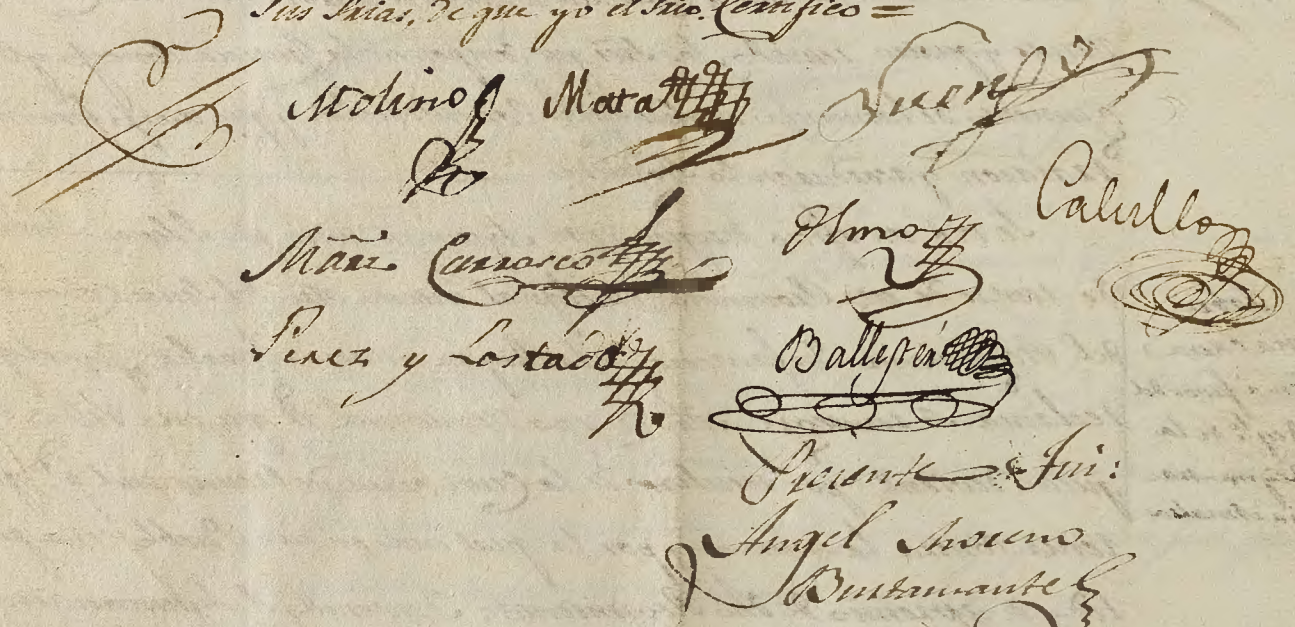 Sus Srias, de que yo el Srio. Certifico =
Molino Mata
Olmo Cabello
Mañz Carrasco
Perez y Lostado Ballestén
Presente Fui:
Angel Moreno
Bustamante